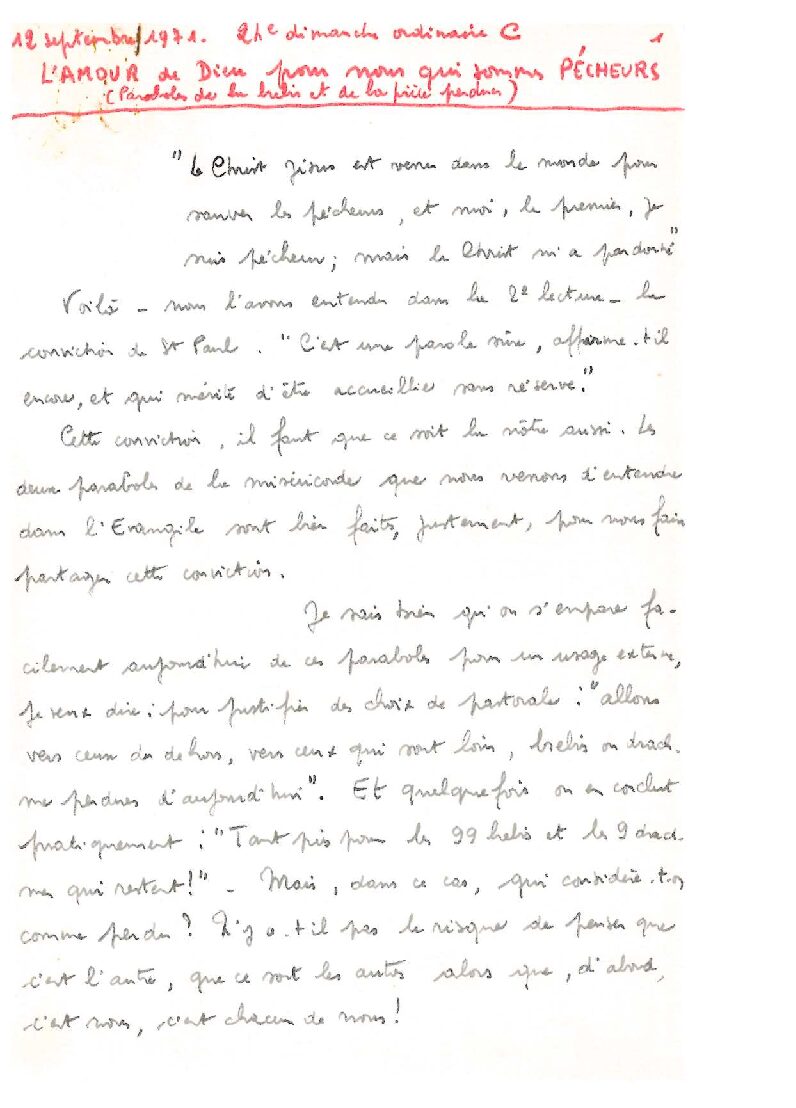 12 septembre/1971. 24e dimanche ordinaire C 1
L'AMOUR de Dieu pour nous qui sommes PÉCHEURS
(Paraboles de la brebis et de la pièce perdues)
"Le Christ Jésus est venu dans le monde pour
sauver les pécheurs, et moi, le premier, je
suis pécheur; mais le Christ m'a pardonné"
Voilà - nous l'avons entendu dans la 2e lecture - la
conviction de St Paul. "C'est une parole sûre, affirme-t-il
encore, et qui mérite d'être accueillie sans réserve."
Cette conviction, il faut que ce soit la nôtre aussi. Les
deux paraboles de la miséricorde que nous venons d'entendre
dans l'Evangile sont bien faites, justement, pour nous faire
partager cette conviction.
Je sais bien qu'on s'empare fa-
cilement aujourd'hui de ces paraboles pour un usage externe,
je veux dire: pour justifier des choix de pastorale: "allons
vers ceux du dehors, vers ceux qui sont loin, brebis ou drach-
me perdues d'aujourd'hui". Et quelquefois on en conclut
pratiquement: "Tant pis pour les 99 brebis et les 9 drach-
mes qui restent!" - Mais, dans ce cas, qui considère-t-on
comme perdu? N'y a-t-il pas le risque de penser que
c'est l'autre, que ce sont les autres alors que, d'abord,
c'est nous, c'est chacun de nous!